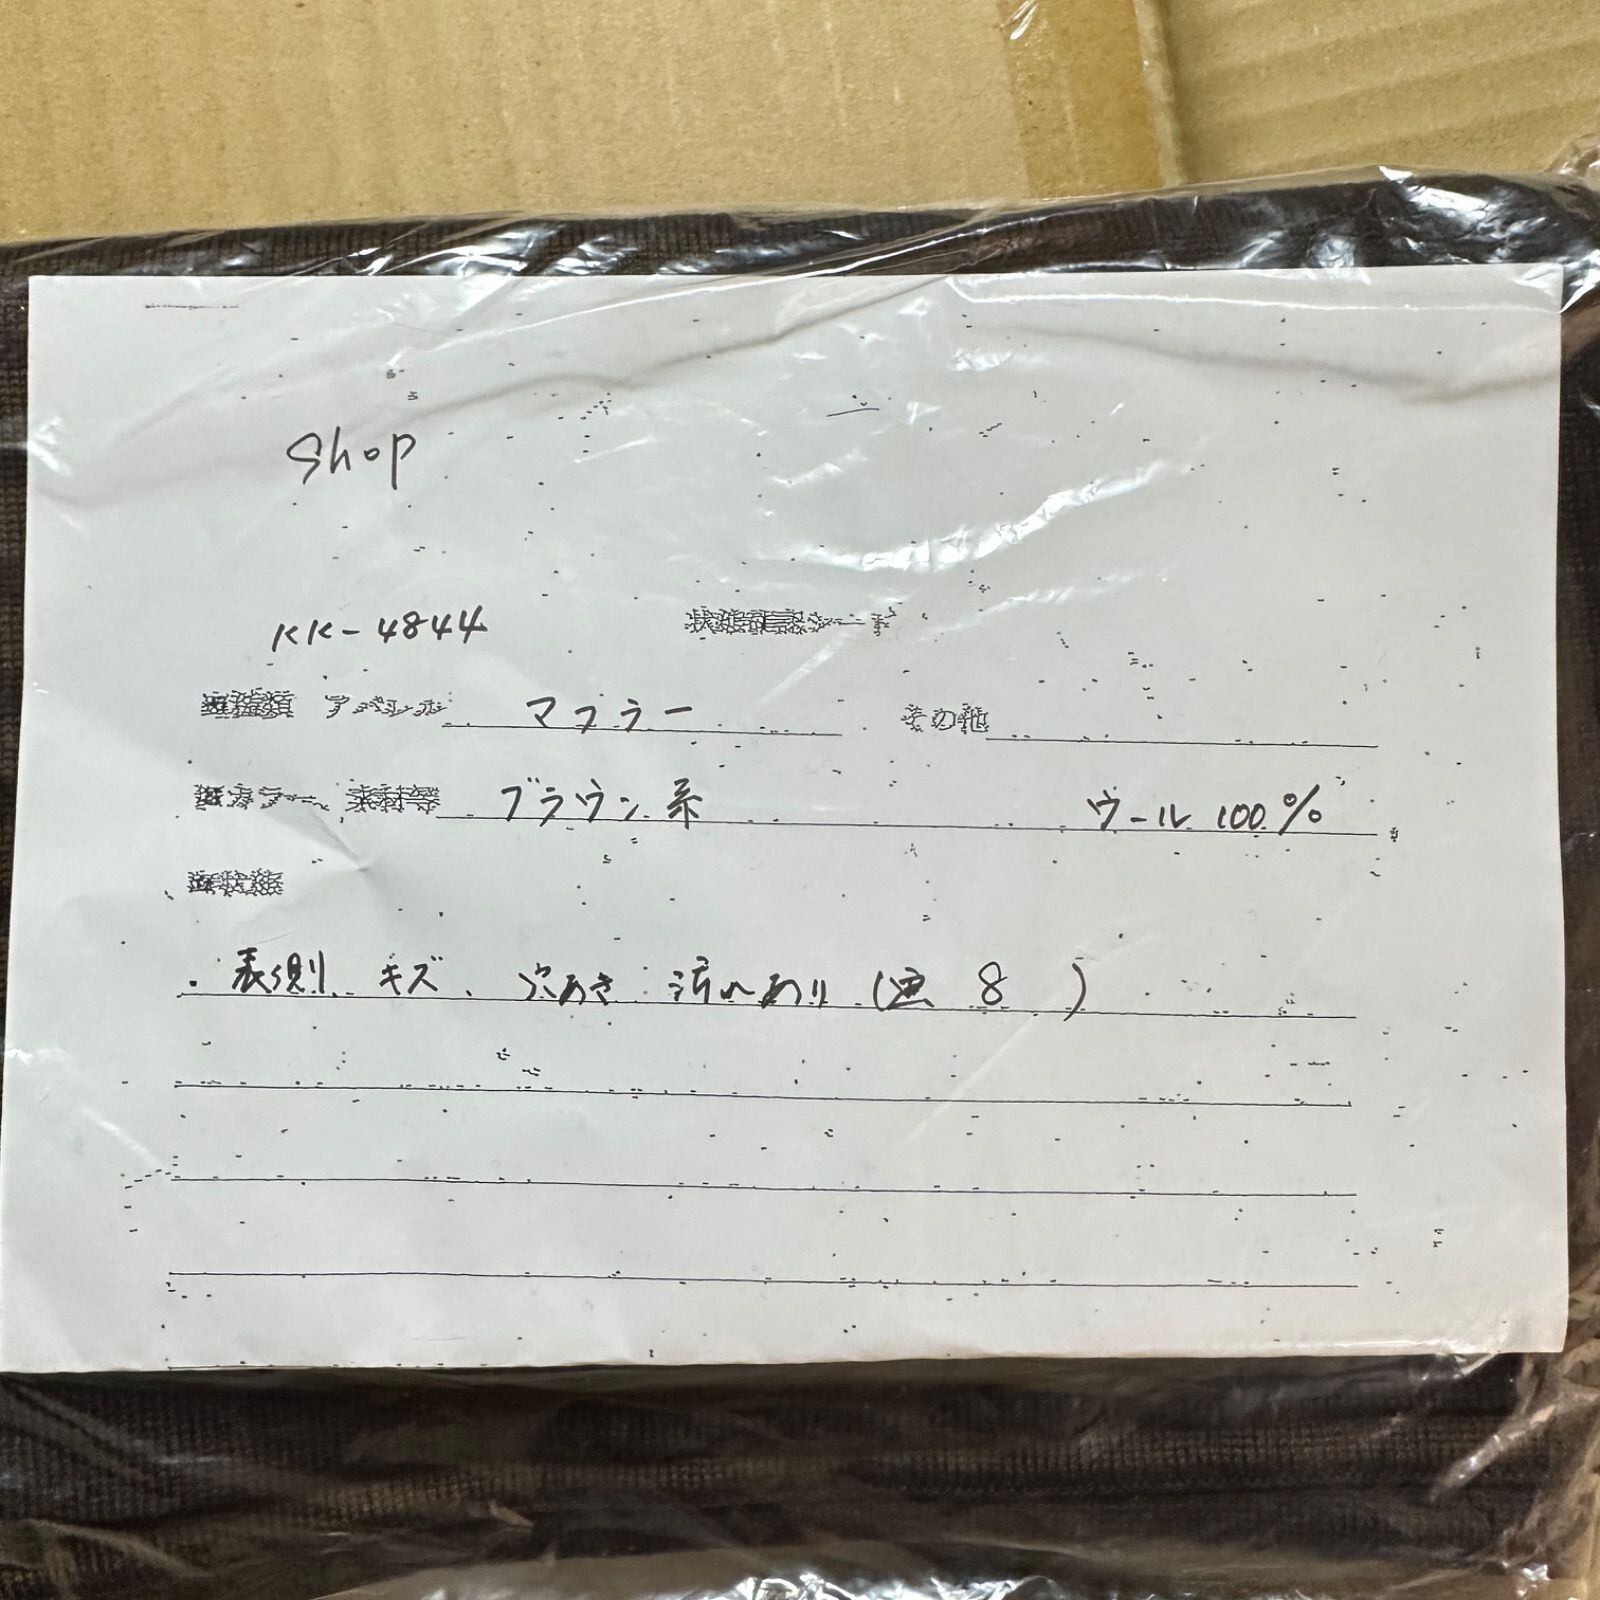 shop
KK-4844
状態確認シート
種類 アパレル マフラー その他
カラー、素材等 ブラウン系 ウール 100%
状態
・表側 キズ、穴あき 汚れあり ( 8 )